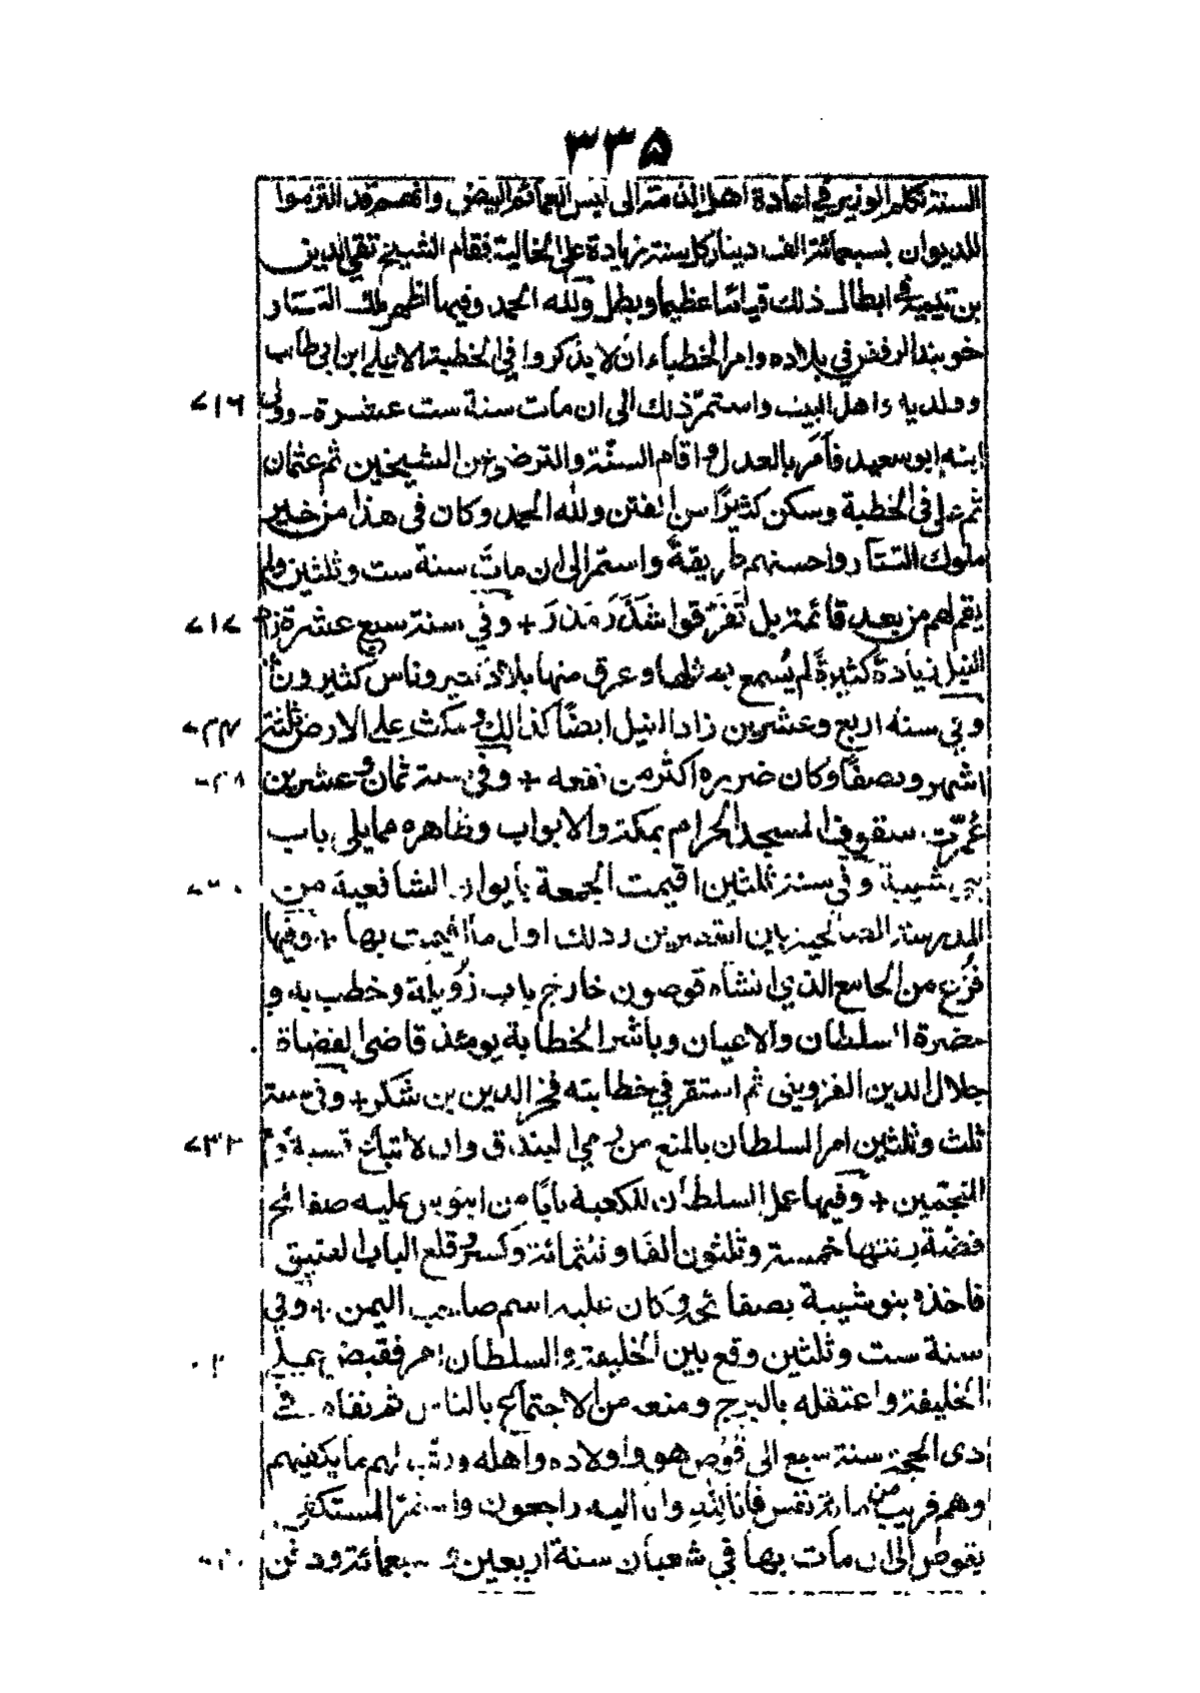 ٣٣٥
السنة تكلم الوزير في اعادة اهل الذمة الى لبس العمائم البيض وانهم قد التزموا
للديوان بسبعمائة الف دينار كل سنة زيادة على الجالية فقام الشيخ تقي الدين
بن تيمية في ابطال ذلك قياما عظيما وبطل ولله الحمد وفيها اظهر ملك التتار
خوبندا الرفض في بلاده وامر الخطباء ان لا يذكروا في الخطبة الا علي ابن ابي طالب
وولديه واهل البيت واستمر ذلك الى ان مات سنة ست عشرة وولى
٧١٦
ابنه ابو سعيد فأمر بالعدل واقام السنّة والترضي عن الشيخين ثم عثمان
ثم علي في الخطبة وسكن كثيرًا من الفتن ولله الحمد وكان في هذا من خير
ملوك التتار واحسنهم طريقةً واستمر الى ان مات سنة ست وثلثين ولم
يقم لهم من بعده قائمة بل تَفَرَّقوا شَذَرَ مَذَرَ + وفي سنة سبع عشرة زاد
٧١٧
النيل زيادة كثيرة لم يُسمع بمثلها وغرق منها بلاد كثير وناس كثيرون
وفي سنة اربع وعشرين زاد النيل ايضًا كذالك ومكث على الارض ثلثة
٧٢٤
اشهر ونصفا وكان ضرره اكثر من نفعه + وفي سنة ثمان وعشرين
٧٢٨
عُمّرت سقوف المسجد الحرام بمكة والابواب وظاهره مما يلي باب
بني شيبة وفي سنة ثلثين اقيمت الجمعة بايوان الشافعية من
٧٣٠
المدرسة الصالحية بين القصرين وذلك اول ما اقيمت بها + وفيها
فرغ من الجامع الذي انشأه قوصون خارج باب زُوَيلة وخطب به و
حضرة السلطان والاعيان وباشر الخطابة يومئذ قاضي القضاة
جلال الدين القزويني ثم استقر في خطابته فخر الدين بن شكر + وفي سنة
ثلث وثلثين امر السلطان بالمنع من رمي البندق وان لا تباع قسيه وذم
٧٣٣
المنجمين + وفيها عمل السلطان للكعبة بابًا من ابنوس عليه صفائح
فضة زنتها خمسة وثلثون الفا وثلثمائة وكسر وقلع الباب العتيق
فاخذه بنو شيبة بصفائحه وكان عليه اسم صاحب اليمن + وفي
سنة ست وثلثين وقع بين الخليفة والسلطان امر فقبض على
الخليفة واعتقله بالبرج ومنعه من الاجتماع بالناس ثم نفاه في
ذى الحجة سنة سبع الى قُوص هو واولاده واهله ورتب لهم ما يكفيهم
وهم قريب من مائة نفس فانا لله وانا اليه راجعون واستمر المستكفي
بقوص الى ان مات بها في شعبان سنة اربعين وسبعمائة ودفن